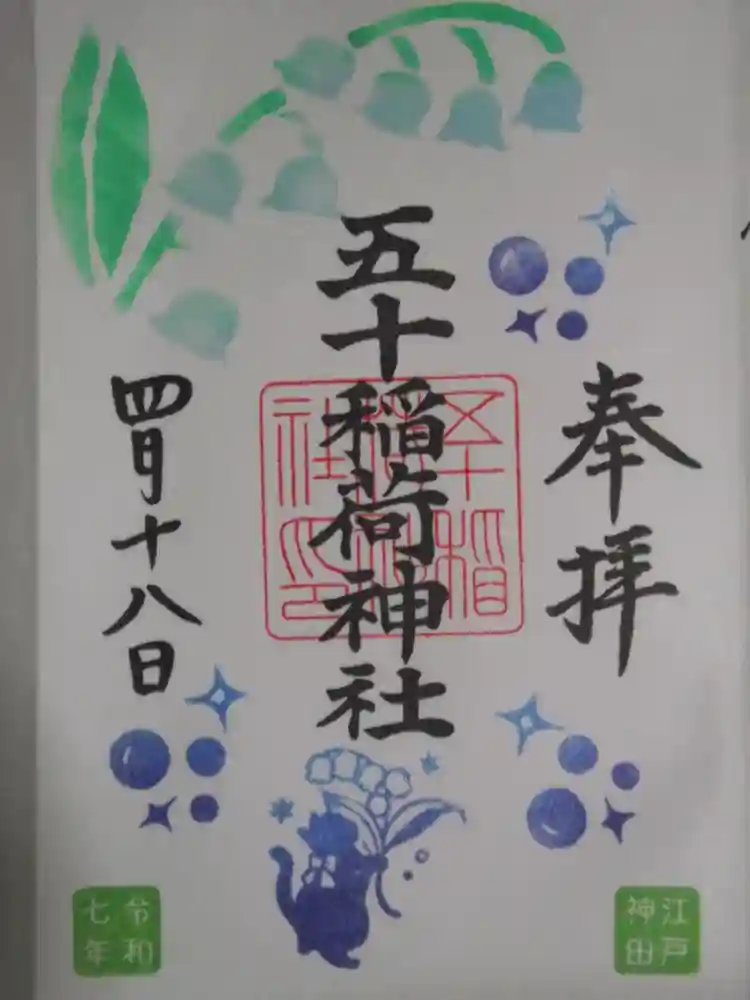 奉拝
五十稲荷神社
五十稲荷神社印
四月十八日
江戸
神田
令和
七年